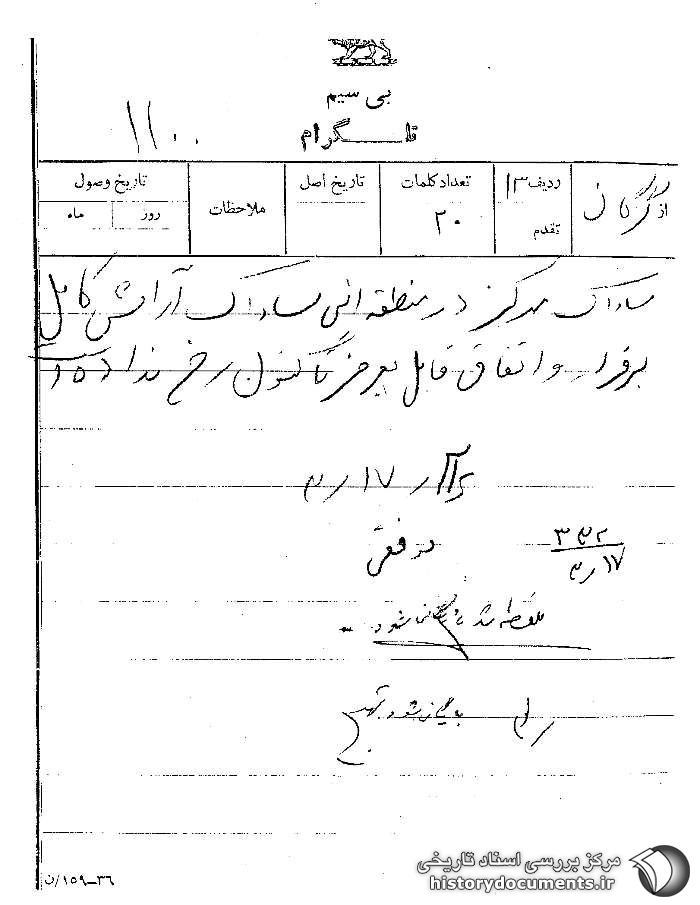 بی سیم
تلگرام
۱۱۰۰
از گرگان
ردیف ۱۳
تقدم
تعداد کلمات
۲۰
تاریخ اصل
ملاحظات
تاریخ وصول
روز
ماه
ساواک مرکز در منطقه این ساواک آرامش کامل
برقرار و اتفاق قابل بعرض تا کنون رخ نداده است
۱۷ر۳
۳۹۲
۱۷ر۳
ملاحظه شد بایگانی شود
بایگانی شود
۳۶_۱۵۹/ن
مرکز بررسی اسناد تاریخی
historydocuments.ir